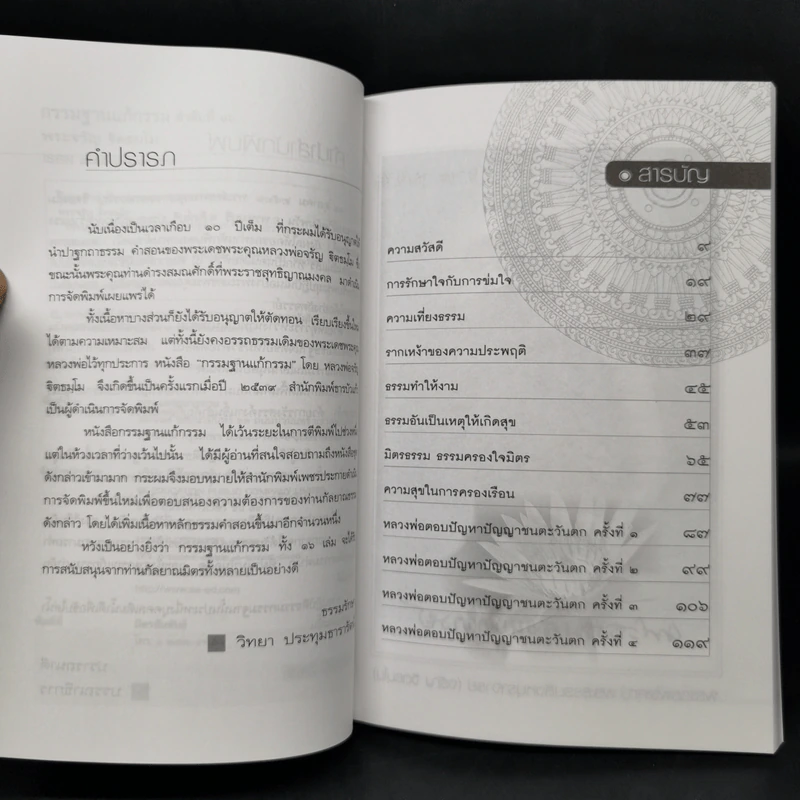 คำปรารภ
นับเนื่องเป็นเวลาเกือบ ๑๐ ปีเต็ม ที่กระผมได้รับอนุญาตให้
นำปาฐกถาธรรม คำสอนของพระเดชพระคุณหลวงพ่อจรัญ ฐิตธมฺโม ซึ่ง
ขณะนั้นพระคุณท่านดำรงสมณศักดิ์ที่พระราชสุทธิญาณมงคล มาดำเนิน
การจัดพิมพ์เผยแพร่ได้
ทั้งเนื้อหาบางส่วนก็ยังได้รับอนุญาตให้ตัดทอน เรียบเรียงขึ้นใหม่
ได้ตามความเหมาะสม แต่ทั้งนี้ยังคงอรรถธรรมเดิมของพระเดชพระคุณ
หลวงพ่อไว้ทุกประการ หนังสือ "กรรมฐานแก้กรรม" โดย หลวงพ่อจรัญ
ฐิตธมฺโม จึงเกิดขึ้นเป็นครั้งแรกเมื่อปี ๒๕๓๙ สำนักพิมพ์ธารบัวแก้ว
เป็นผู้ดำเนินการจัดพิมพ์
หนังสือกรรมฐานแก้กรรม ได้เว้นระยะในการตีพิมพ์ไปช่วงหนึ่ง
แต่ในห้วงเวลาที่ว่างเว้นไปนั้น ได้มีผู้อ่านที่สนใจสอบถามถึงหนังสือชุด
ดังกล่าวเข้ามามาก กระผมจึงมอบหมายให้สำนักพิมพ์เพชรประกาย
การจัดพิมพ์ขึ้นใหม่เพื่อตอบสนองความต้องการของท่านกัลยาณธรรม
ดังกล่าว โดยได้เพิ่มเนื้อหาหลักธรรมคำสอนขึ้นมาอีกจำนวนหนึ่ง
หวังเป็นอย่างยิ่งว่า กรรมฐานแก้กรรม ทั้ง ๑๖ เล่ม จะได้รับ
การสนับสนุนจากท่านกัลยาณมิตรทั้งหลายเป็นอย่างดี
ธรรมรักษา
วิทยา ประทุมธารารัตน์
สารบัญ
ความสวัสดี ๙
การรักษาใจกับการข่มใจ ๑๙
ความเที่ยงธรรม ๒๙
รากเหง้าของความประพฤติ ๓๗
ธรรมทำให้งาม ๔๕
ธรรมอันเป็นเหตุให้เกิดสุข ๕๓
มิตรธรรม ธรรมครองใจมิตร ๖๕
ความสุขในการครองเรือน ๗๗
หลวงพ่อตอบปัญหาปัญญาชนตะวันตก ครั้งที่ ๑ ๘๗
หลวงพ่อตอบปัญหาปัญญาชนตะวันตก ครั้งที่ ๒ ๙๙
หลวงพ่อตอบปัญหาปัญญาชนตะวันตก ครั้งที่ ๓ ๑๐๖
หลวงพ่อตอบปัญหาปัญญาชนตะวันตก ครั้งที่ ๔ ๑๑๙